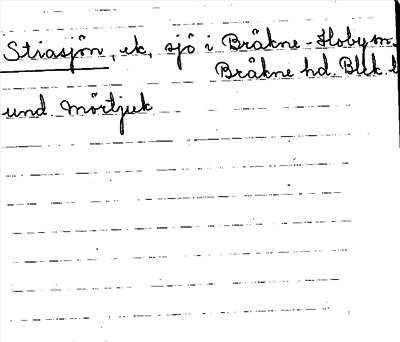 Stiasjön, ek, sjö i Bräkne-Hoby sn.
Bräkne hd. Blek. l
und. Mörtjuk